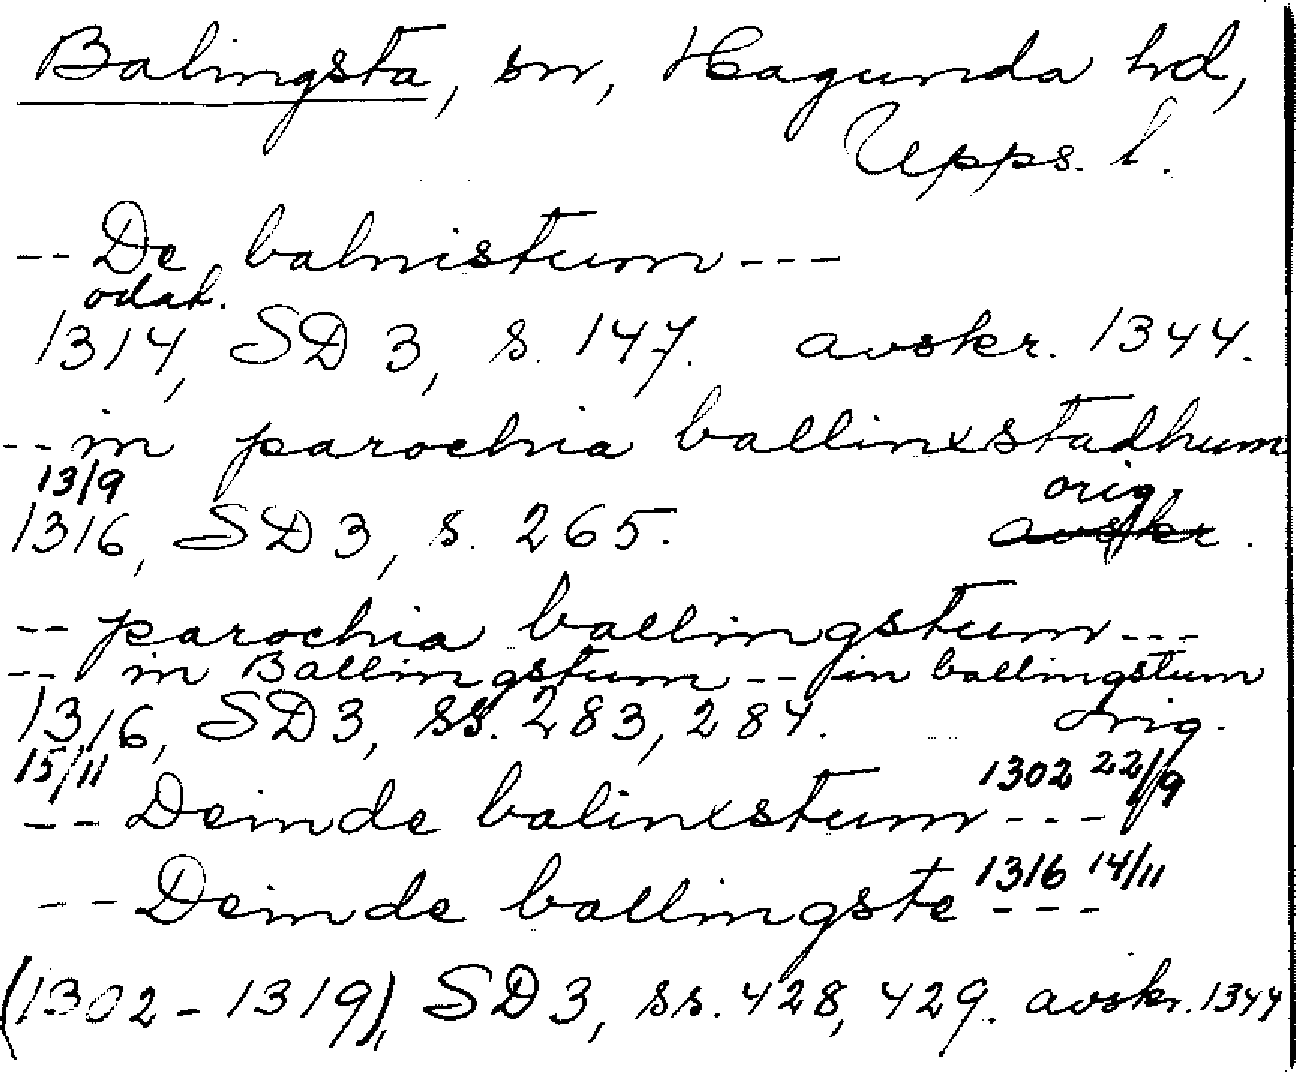 Balingsta, sn, Hagunda hd,
Upps. l.
-- De balnistum ---
odat.
1314, SD 3, s. 147. avskr. 1344.
-- in parochia ballinxstadhum
13/9 orig.
1316, SD 3, s. 265. avskr.
-- parochia ballingstum ---
-- in Ballingstum -- in ballingstum
1316, SD 3, ss. 283, 284. orig.
15/11 1302 22/9
-- Deinde balinxstum ---
1316 14/11
-- Deinde ballingste ---
(1302-1319), SD 3, ss. 428, 429. avskr. 1344